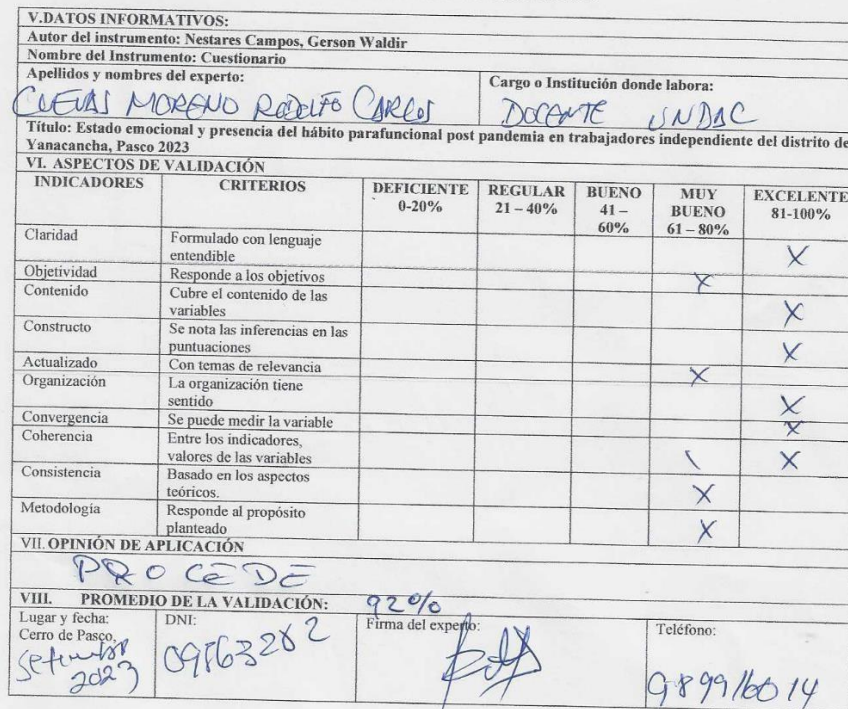 V.DATOS INFORMATIVOS:
Autor del instrumento: Nestares Campos, Gerson Waldir
Nombre del Instrumento: Cuestionario
Apellidos y nombres del experto:
CUEVAS MORENO RODOLFO CARLOS
Cargo o Institución donde labora:
DOCENTE UNDAC
Título: Estado emocional y presencia del hábito parafuncional post pandemia en trabajadores independiente del distrito de
Yanacancha, Pasco 2023
VI. ASPECTOS DE VALIDACIÓN
INDICADORES CRITERIOS DEFICIENTE 0-20% REGULAR 21 – 40% BUENO 41 – 60% MUY BUENO 61 – 80% EXCELENTE 81-100%
Claridad Formulado con lenguaje
entendible X
Objetividad Responde a los objetivos X
Contenido Cubre el contenido de las
variables X
Constructo Se nota las inferencias en las
puntuaciones X
Actualizado Con temas de relevancia X
Organización La organización tiene
sentido X
Convergencia Se puede medir la variable X
Coherencia Entre los indicadores,
valores de las variables X
Consistencia Basado en los aspectos
teóricos. X
Metodología Responde al propósito
planteado X
VII. OPINIÓN DE APLICACIÓN
PROCEDE
VIII. PROMEDIO DE LA VALIDACIÓN: 92%
Lugar y fecha:
Cerro de Pasco,
Setiembre
2023
DNI:
Firma del experto:
Teléfono: